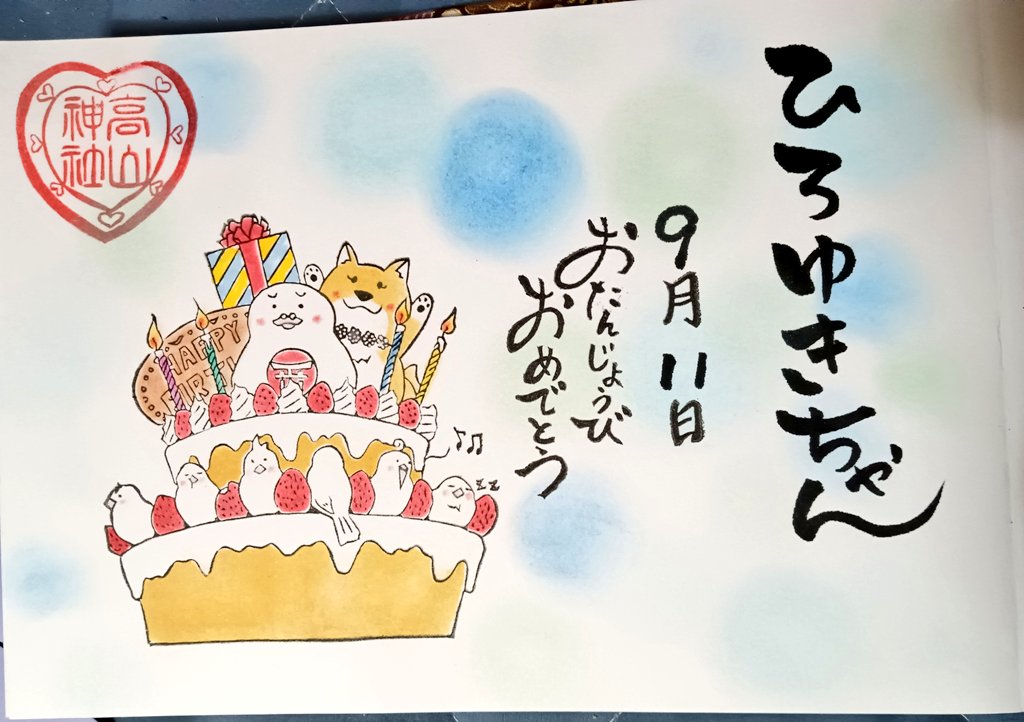 ひろゆきちゃん
9月11日
おたんじょうび
おめでとう
高山
神社
HAPPY
BIRTH
zz